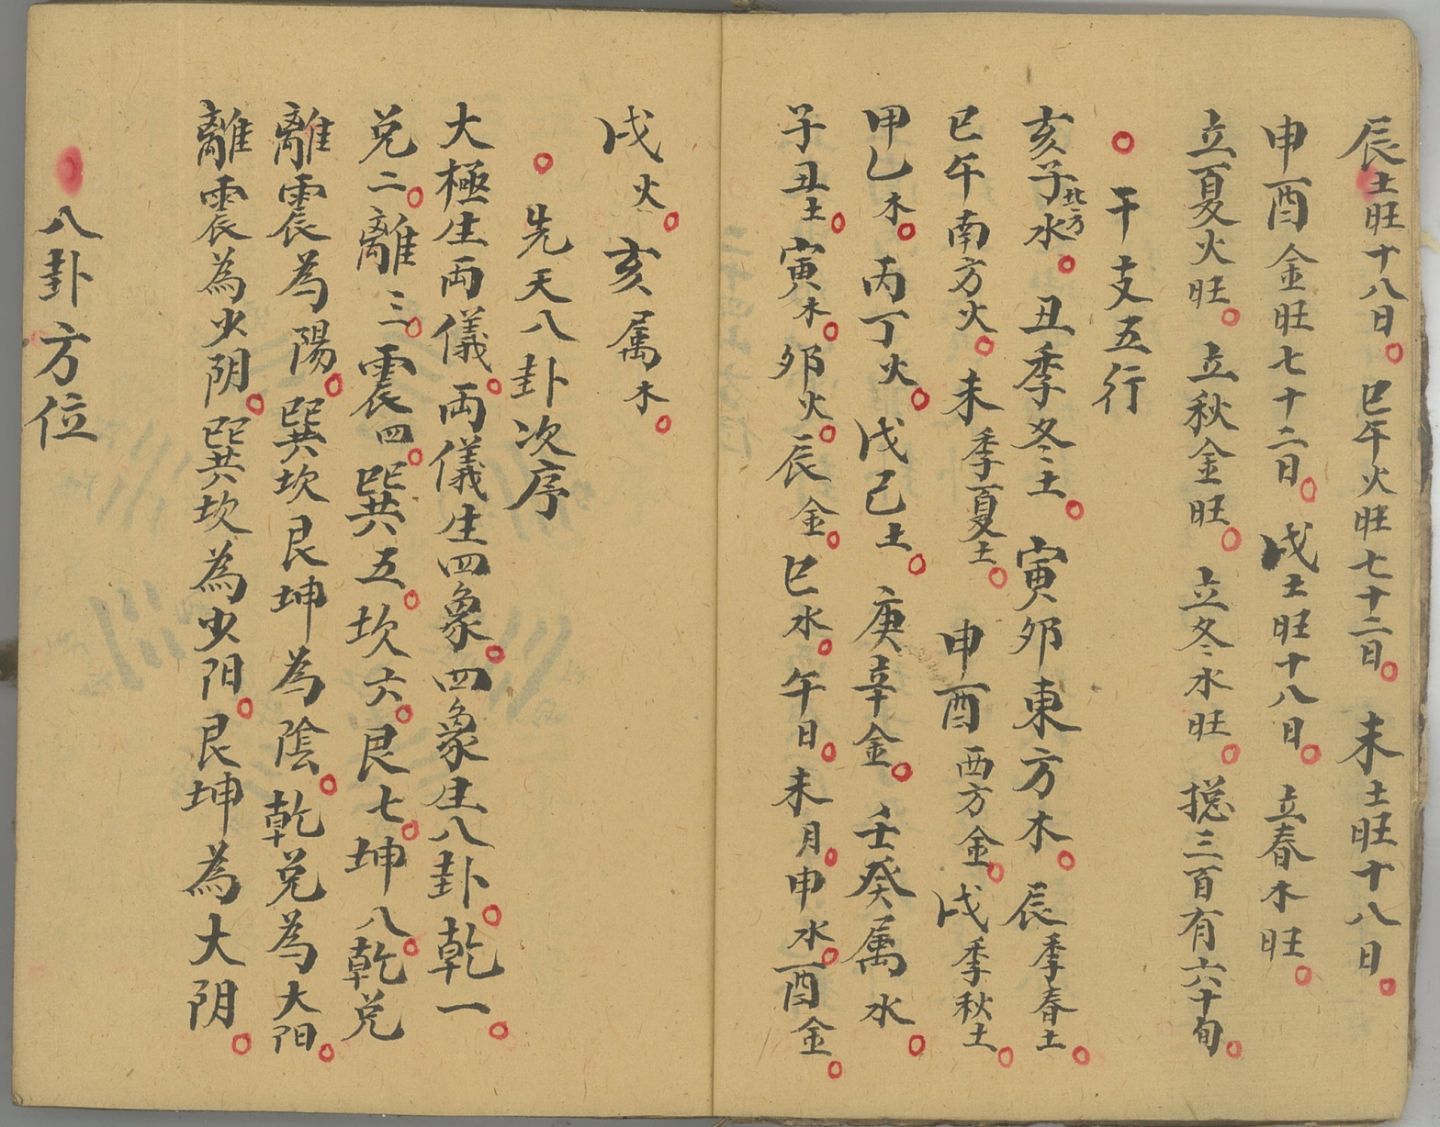 辰土旺十八日。巳午火旺七十二日。未土旺十八日。
申酉金旺七十二日。戌土旺十八日。立春木旺。
立夏火旺。立秋金旺。立冬水旺。摠三百有六十旬。
○干支五行
亥子北方水。丑季冬土。寅卯東方木。辰季春土。
巳午南方火。未季夏土。申酉西方金。戌季秋土。
甲乙木。丙丁火。戊己土。庚辛金。壬癸属水。
子丑土。寅木。卯火。辰金。巳水。午日。未月。申水。酉金。
戌火。亥属木。
○先天八卦次序
大極生両儀。両儀生四象。四象生八卦。乾一。
兌二。離三。震四。巽五。坎六。艮七。坤八。乾兌
離震為陽。巽坎艮坤為陰。乾兌為大阳。
離震為少阴。巽坎為少阳。艮坤為大阴。
八卦方位